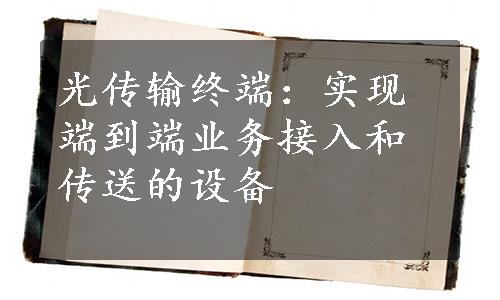 光传输终端：实现
端到端业务接入和
传送的设备